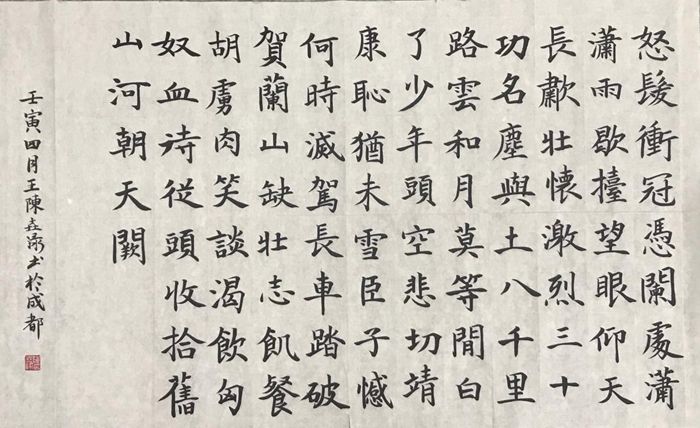 怒髮衝冠憑闌處瀟
瀟雨歇擡望眼仰天
長歗壯懷激烈三十
功名塵與土八千里
路雲和月莫等閒白
了少年頭空悲切靖
康恥猶未雪臣子憾
何時滅駕長車踏破
賀蘭山缺壯志飢餐
胡虜肉笑談渴飲匈
奴血待從頭收拾舊
山河朝天闕
壬寅四月王陳垚书於成都